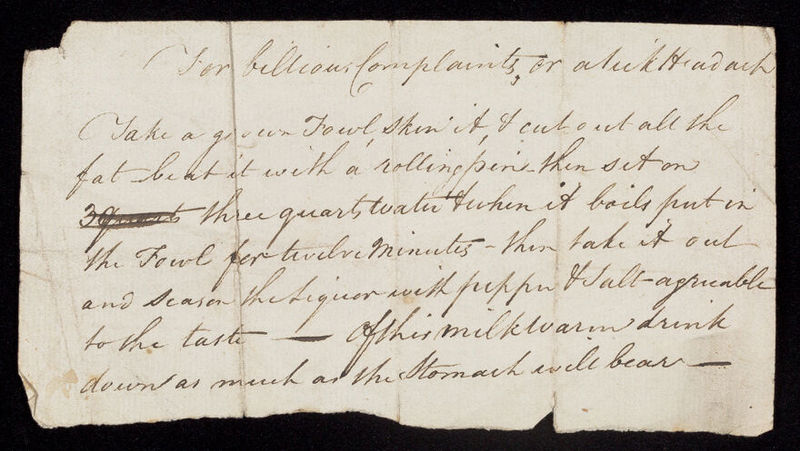 For billious Complaints, or a sick Headach
Take a grown Fowl, skin it, & cut out all the
fat – beat it with a rollingpin – then set on
3 quarts three quarts water & when it boils put in
the Fowl for twelve minutes – then take it out
and season the Liquor with pepper & Salt – agreeable
to the taste — Of this milkwarm drink
down as much as the Stomach will bear —